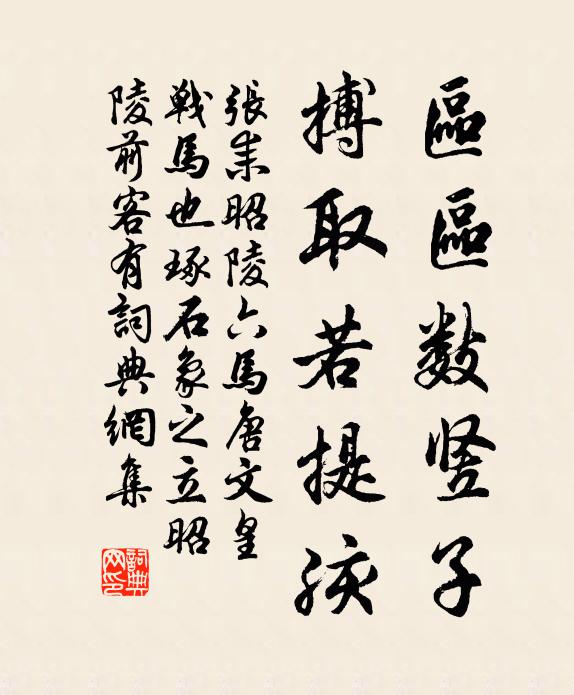 區區數豎子
搏取若提孩
張耒昭陵六馬唐文皇
戰馬也琢石象之立昭
陵前客有詞典網集
詞典
网印